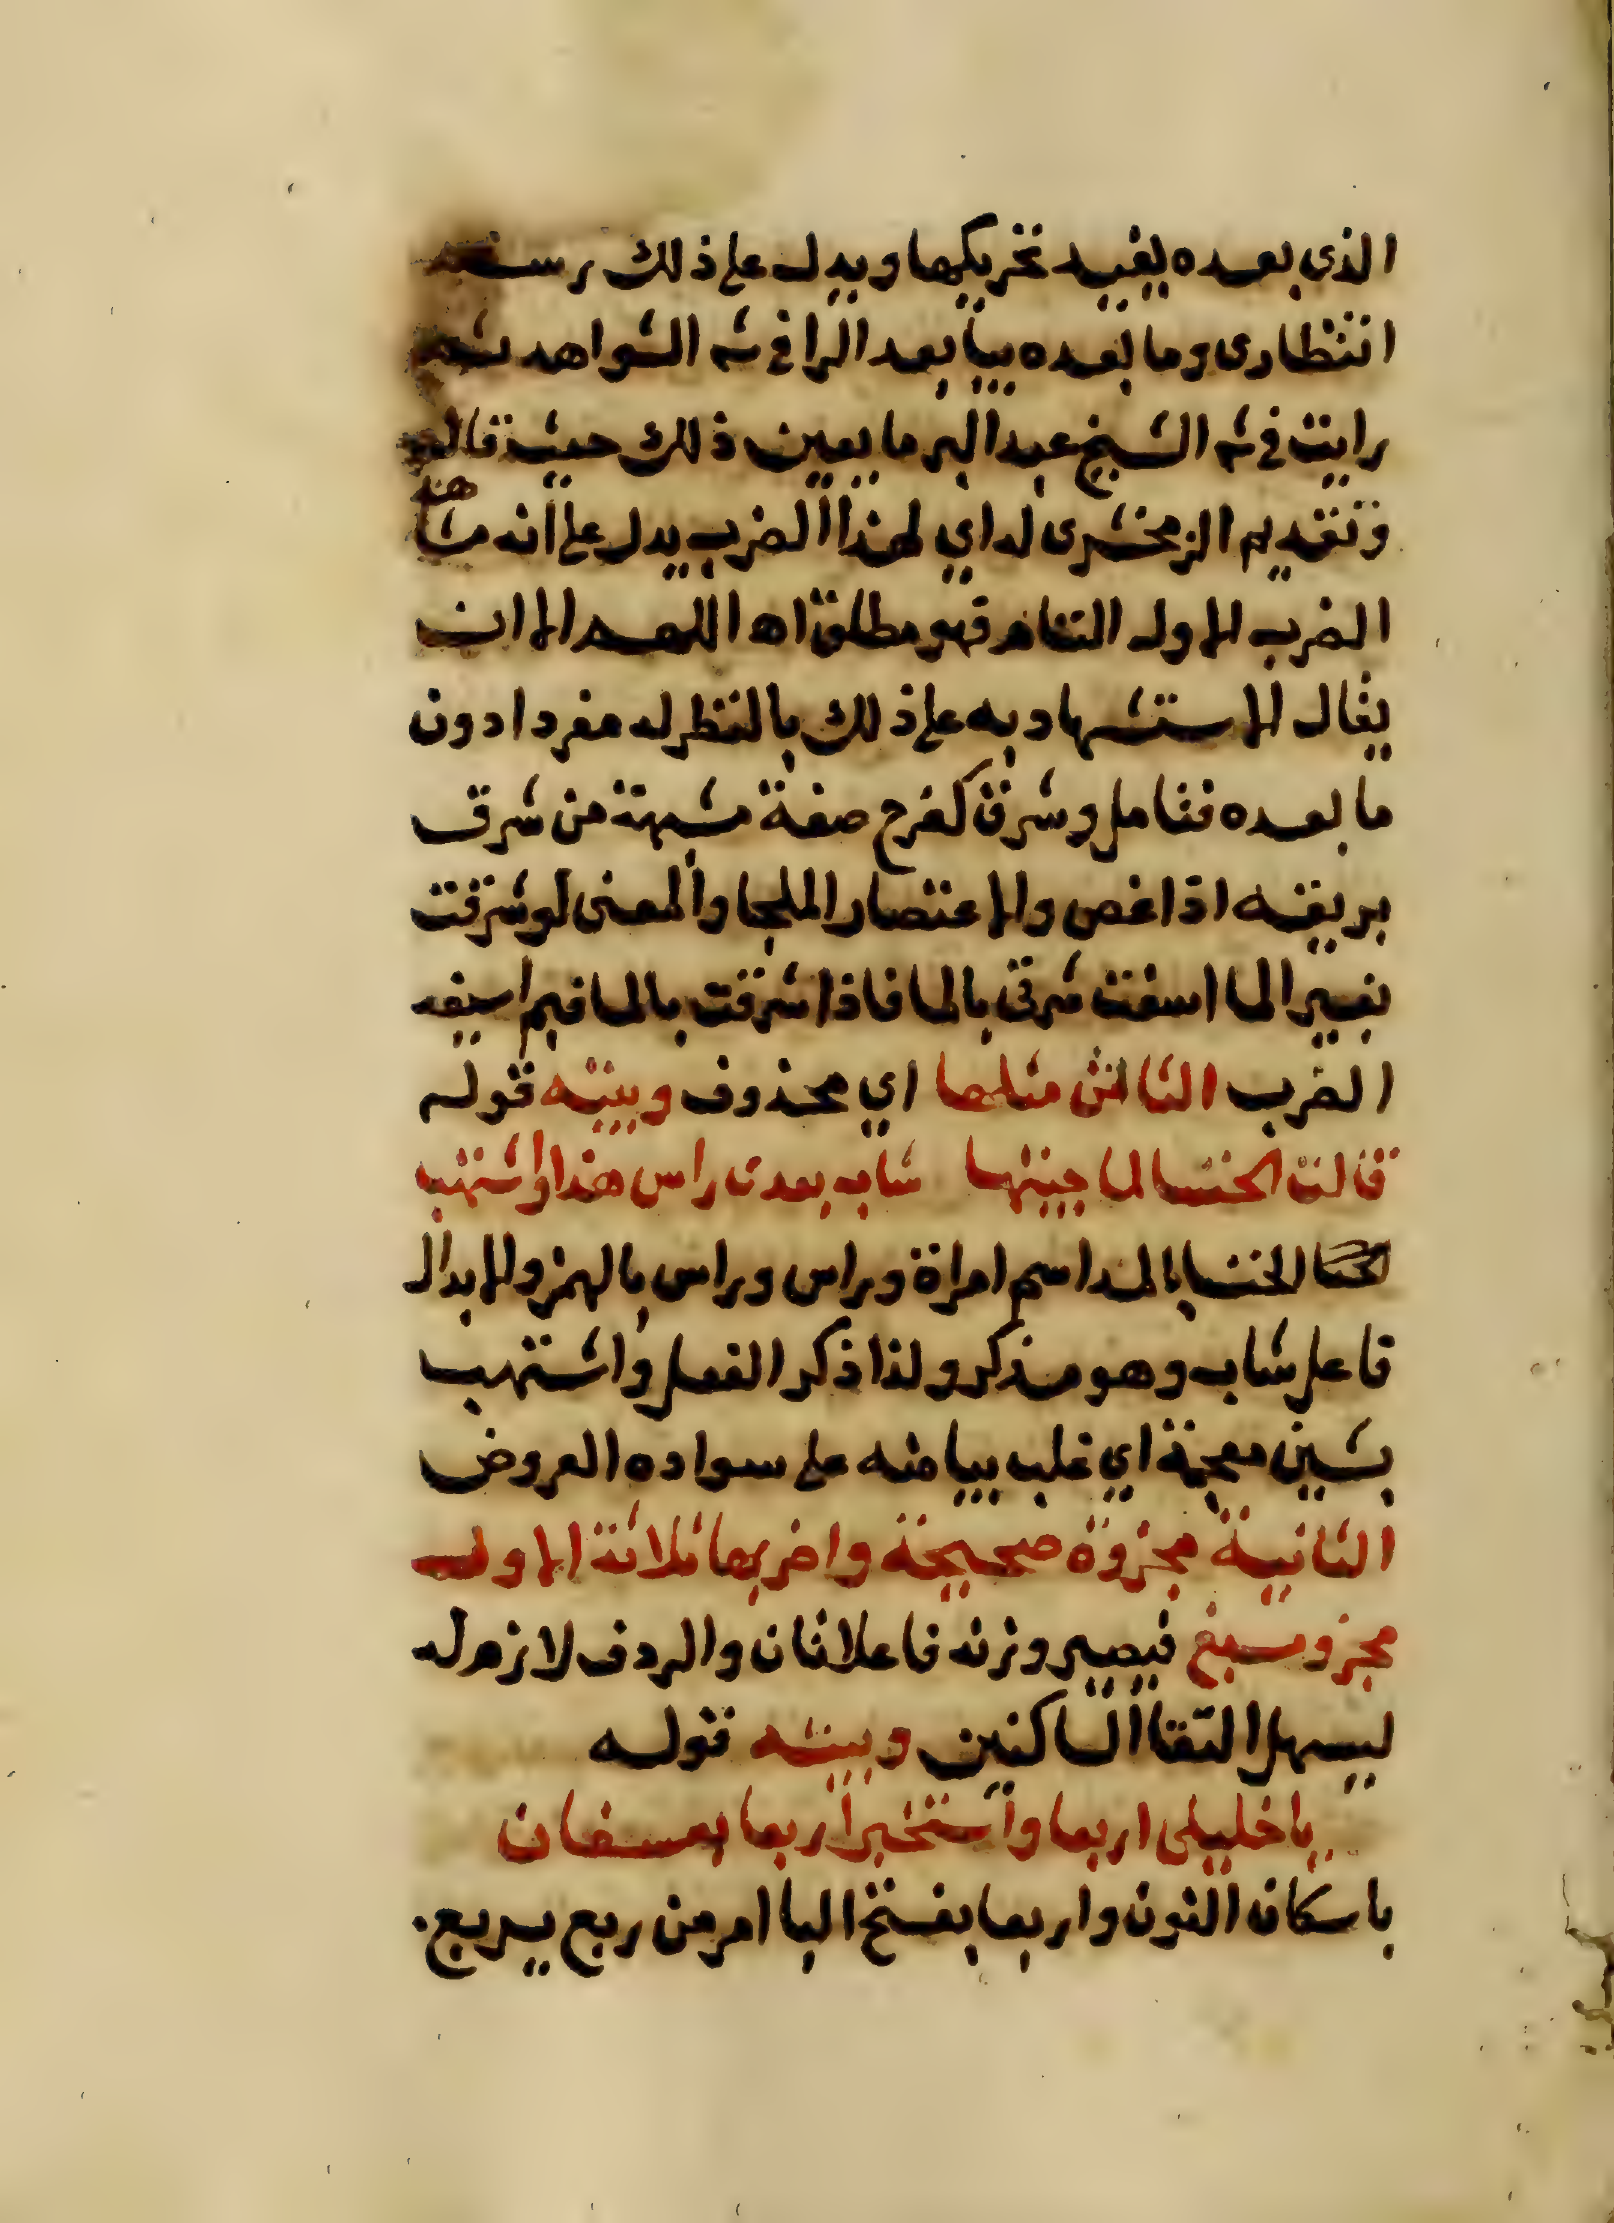 الذي بعده يفيد تحريكها ويدل على ذلك رسم
انتظارى وما بعده بيا بعد الرا في شـ الشواهد ثم
رايت في شـ الشيخ عبد البر ما يعين ذلك حيث قال
وتقديم الزمخشرى له اي لهذا الضرب يدل على انه عنده
الضرب الاول التام فهو مطلق اه اللهم الا ان
يقال الاستشهاد به على ذلك بالنظر له مفردا دون
ما بعده فتامل وشرق كفرح صفة مشبهة من شرق
بريقه اذا غص والاعتصار الملجا والمعنى لو شرقت
بغير الما اسغت شرقى بالما فاذا شرقت بالما فبم اسيغه
الضرب الثالث مثلها اي محذوف وبيته قوله
قالت الخنسا لما جيتها شاب بعدى راس هذا واشتهب
الخنسا بالمد اسم امراة وراس وراس بالهمز والابدال
فاعل شاب وهو مذكر ولذا ذكر الفعل واشتهب
بشين معجمة اي غلب بياضه على سواده العروض
الثانية مجزوة صحيحة واضربها ثلاثة الاول
مجزو مسبغ فيصير وزنه فاعلاتان والردف لازم له
ليسهل التقا الساكنين وبيته قوله
يا خليلى اربعا واستخبرا ربعا بعسفان
باسكان النون واربعا بفتح البا امر من ربع يربع.